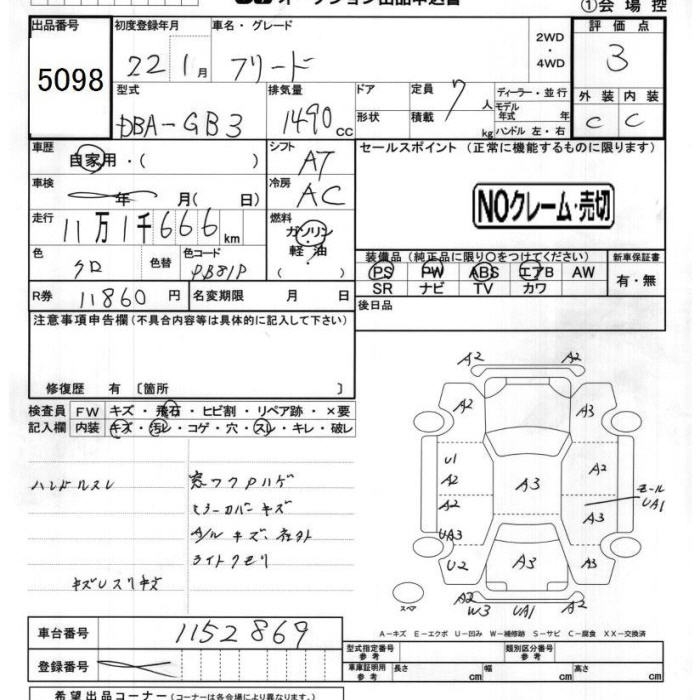 ①会場控
出品番号
5098
初度登録年月
22 1月
車名・グレード
フリード
2WD
・
4WD
評価点
3
型式
DBA-GB3
排気量
1490 cc
ドア
形状
定員
7人
積載
kg
ディーラー・並行
モデル
年式 年
ハンドル 左・右
外装 内装
C C
車歴
自家用・( )
シフト
AT
セールスポイント (正常に機能するものに限ります)
車検
年 月( 日)
冷房
AC
NOクレーム・売切
走行
11万1千666km
燃料
ガソリン
軽油
( )
色
クロ
色替
色コード
PB81P
装備品(純正品に限り〇をつけてください)
新車保証書
PS PW ABS エアB AW
SR ナビ TV カワ
有・無
R券
11860円
名変期限 月 日
後日品
注意事項申告欄(不具合内容等は具体的に記入して下さい)
修復歴 有 〔箇所 〕
検査員
記入欄
FW キズ・飛石・ヒビ割・リペア跡・×要
内装 キズ・汚レ・コゲ・穴・スレ・キレ・破レ
ハンドルスレ
窓ワクPハゲ
ミラーカバーキズ
A/Wキズ、社外
ライトクモリ
A2 A2
A2 A3
U1
A2 A2
A2 A3 モール
UA1
A3
UA3
U2 A3 A3
A2 W3 UA1 A2
スペア
A-キズ E-エクボ U-凹み W-補修跡 S-サビ C-腐食 XX-交換済
車台番号
1152869
登録番号
型式指定番号
参考
類別区分番号
参考
車庫証明用
参考
長さ cm 幅 cm 高さ cm
希望出品コーナー(コーナーは各会場により異なります。)